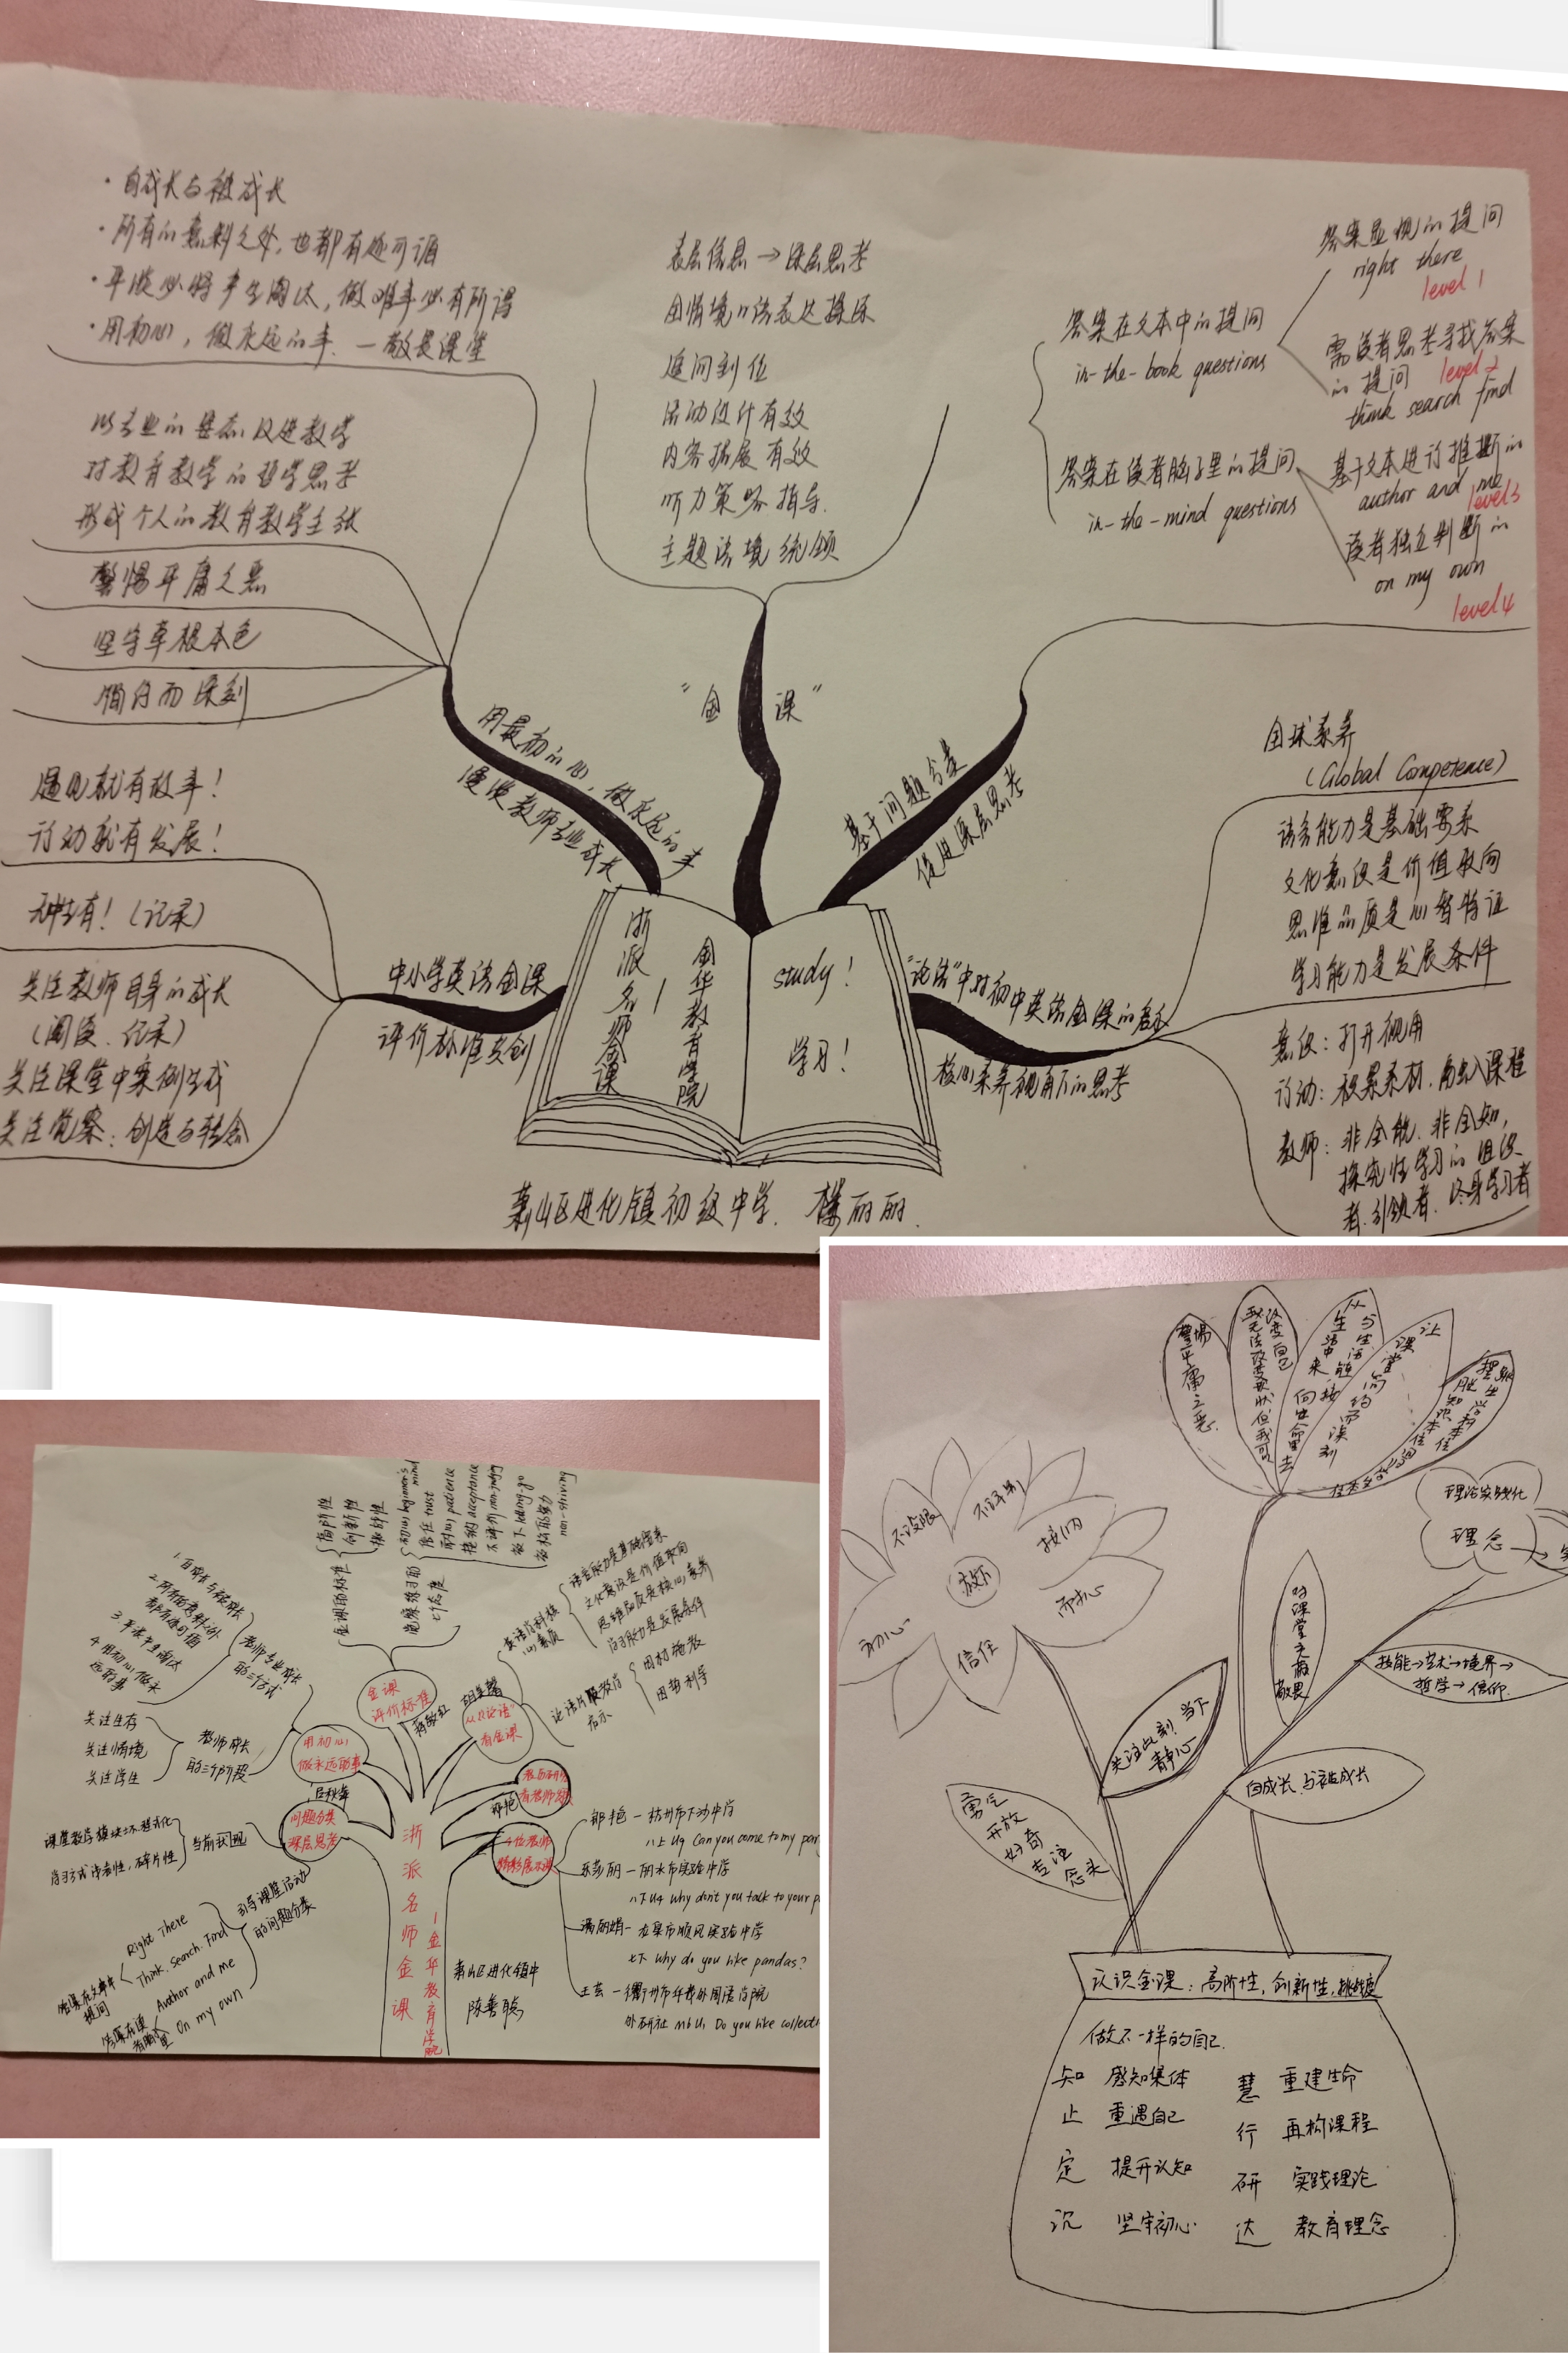 · 自成长与被成长
· 所有的意料之处,也都有迹可循
· 平淡必将产生淘汰,做难事必有所得
· 用初心,做永远的事. —敬畏课堂
以专业的姿态改进教学
对教育教学的哲学思考
形成个人的教育教学主张
警惕平庸之恶
坚守草根本色
简约而深刻
用最初的心,做永远的事
漫谈教师专业成长
表层信息→深层思考
全情境的语表达操练
追问到位
活动设计有效
内容拓展有效
听力策略指导.
主题语境统领
“金课”
答案在文本中的提问
in-the-book questions
答案显现的提问
right there
level 1
需读者思考寻找答案
的提问 level 2
think search find
答案在读者脑子里的提问
in-the-mind questions
基于文本进行推断的
author and me
level 3
读者独立判断的
on my own
level 4
基于问题分类
促进深层思考
全球素养
(Global Competence)
语言能力是基础要素
文化意识是价值取向
思维品质是心智特征
学习能力是发展条件
意识:打开视角
行动:积累素材,融入课程
教师:非全能、非全知,
探究性学习的组织
者、引领者、终身学习者
“论语”中对初中英语金课的启示
核心素养视角下的思考
遇见就有故事!
行动就有发展!
无中生有!(记录)
关注教师自身的成长
(阅读、记录)
关注课堂中案例生成
关注觉察:创造与转念
中小学英语金课
评价标准共创
浙派名师金课
—金华教育学院
study!
学习!
萧山区进化镇初级中学. 楼丽丽.
高阶性
创新性
挑战性
金课的标准
初心 beginner's mind
信任 trust
耐心 patience
接纳 acceptance
不评判 non-judging
放下 letting-go
non-striving
觉察练习的
七个态度
金课
评价标准
蒋敏红
1. 自成长与被成长
2. 所有的意料之外
都有迹可循
3. 平淡产生淘汰
4. 用初心做永
远的事
教师专业成长
的三个方式
关注生存
关注情境
关注学生
教师成长
的三个阶段
用初心
做永远的事
语言能力是基础要素
文化意识是价值取向
思维品质是核心素养
学习能力是发展条件
英语学科核
心素质
因材施教
因势利导
论语片段教育
启示
从“论语”
看金课
问题分类
深层思考
当前状况
课堂教学模块化、程式化
学习方式浅表性,碎片性
引导课堂活动
的问题分类
答案在文本中
提问
Right There
Think. Search. Find
答案在读
者脑子里
Author and me
On my own
4位老师
精彩展示课
郭艳—杭州市下沙中学
八上 U9 Can you come to my par
乐莎丽—丽水市实验中学
八下U4 Why don't you talk to your p
潘丽娟—龙泉市顺风实验中学
七下 Why do you like pandas?
王芸—衢州市华茂外国语学院
外研社 M6 U1 Do you like collect
浙派名师金课
—金华教育学院
萧山区进化镇中
陈善聪
警惕平庸之恶
我无法改变现状但我可以
改变自己
从生活中来 向生命里去
与生活链接
让课堂简约而深刻
理论实践化
理念
不设限
不评判
接纳
放下
耐心
初心
信任
对课堂充满敬畏
技能→艺术→境界→
哲学→信仰.
关注此刻 当下
静心
自成长与被成长
勇气
开放
好奇
专注
念头
认识金课:高阶性,创新性,挑战度
做不一样的自己.
知 感知集体 慧 重建生命
止 重遇自己 行 再构课程
定 提升认知 研 实践理论
沉 坚守初心 达 教育理念